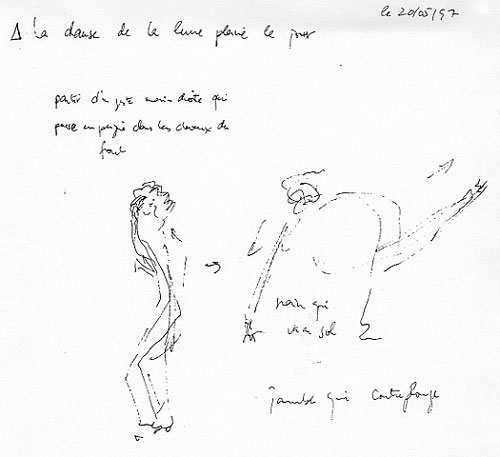 le 20/05/97
Δ la danse de la lune pleine le jour
partir d'un geste main droite qui
passe en peigne dans les cheveux du
front
main qui
va au sol
jambe qui contreplonge